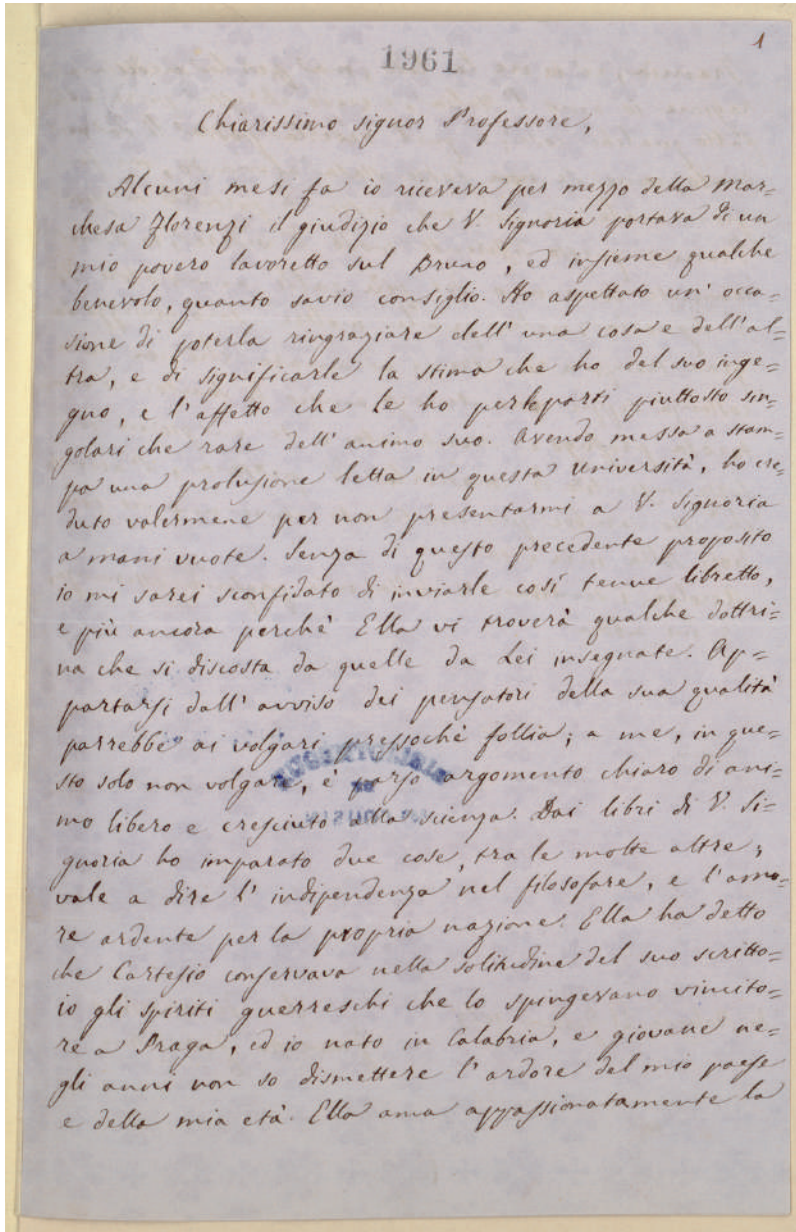 1
1961
Chiarissimo signor Professore,
Alcuni mesi fa io riceveva per mezzo della Mar=
chesa Florenzi il giudizio che V. Signoria portava di un
mio povero lavoretto sul Bruno, ed insieme qualche
benevolo, quanto savio consiglio. Ho aspettato un' occa=
sione di poterla ringraziare dell' una cosa e dell' al=
tra, e di significarle la stima che ho del suo inge=
gno, e l'affetto che le ho per le parti piuttosto sin=
golari che rare dell' animo suo. Avendo messa a stam=
pa una prolusione letta in questa Università, ho cre=
duto valermene per non presentarmi a V. Signoria
a mani vuote. Senza di questo precedente proposito
io mi sarei sconfidato di inviarle così tenue libretto,
e più ancora perchè Ella vi troverà qualche dottri=
na che si discosta da quelle da Lei insegnate. Ap=
partarsi dall' avviso dei pensatori della sua qualità
parrebbe ai volgari pressochè follia; a me, in que=
sto solo non volgare, è parso argomento chiaro di ani=
mo libero e cresciuto alla scienza. Dai libri di V. Si=
gnoria ho imparato due cose, tra le molte altre,
vale a dire l' indipendenza nel filosofare, e l'amo=
re ardente per la propria nazione. Ella ha detto
che Cartesio conservava nella solitudine del suo scritto=
io gli spiriti guerreschi che lo spingevano vincito=
re a Praga, ed io nato in Calabria, e giovane ne=
gli anni non so dismettere l'ardore del mio paese
e della mia età. Ella ama appassionatamente la